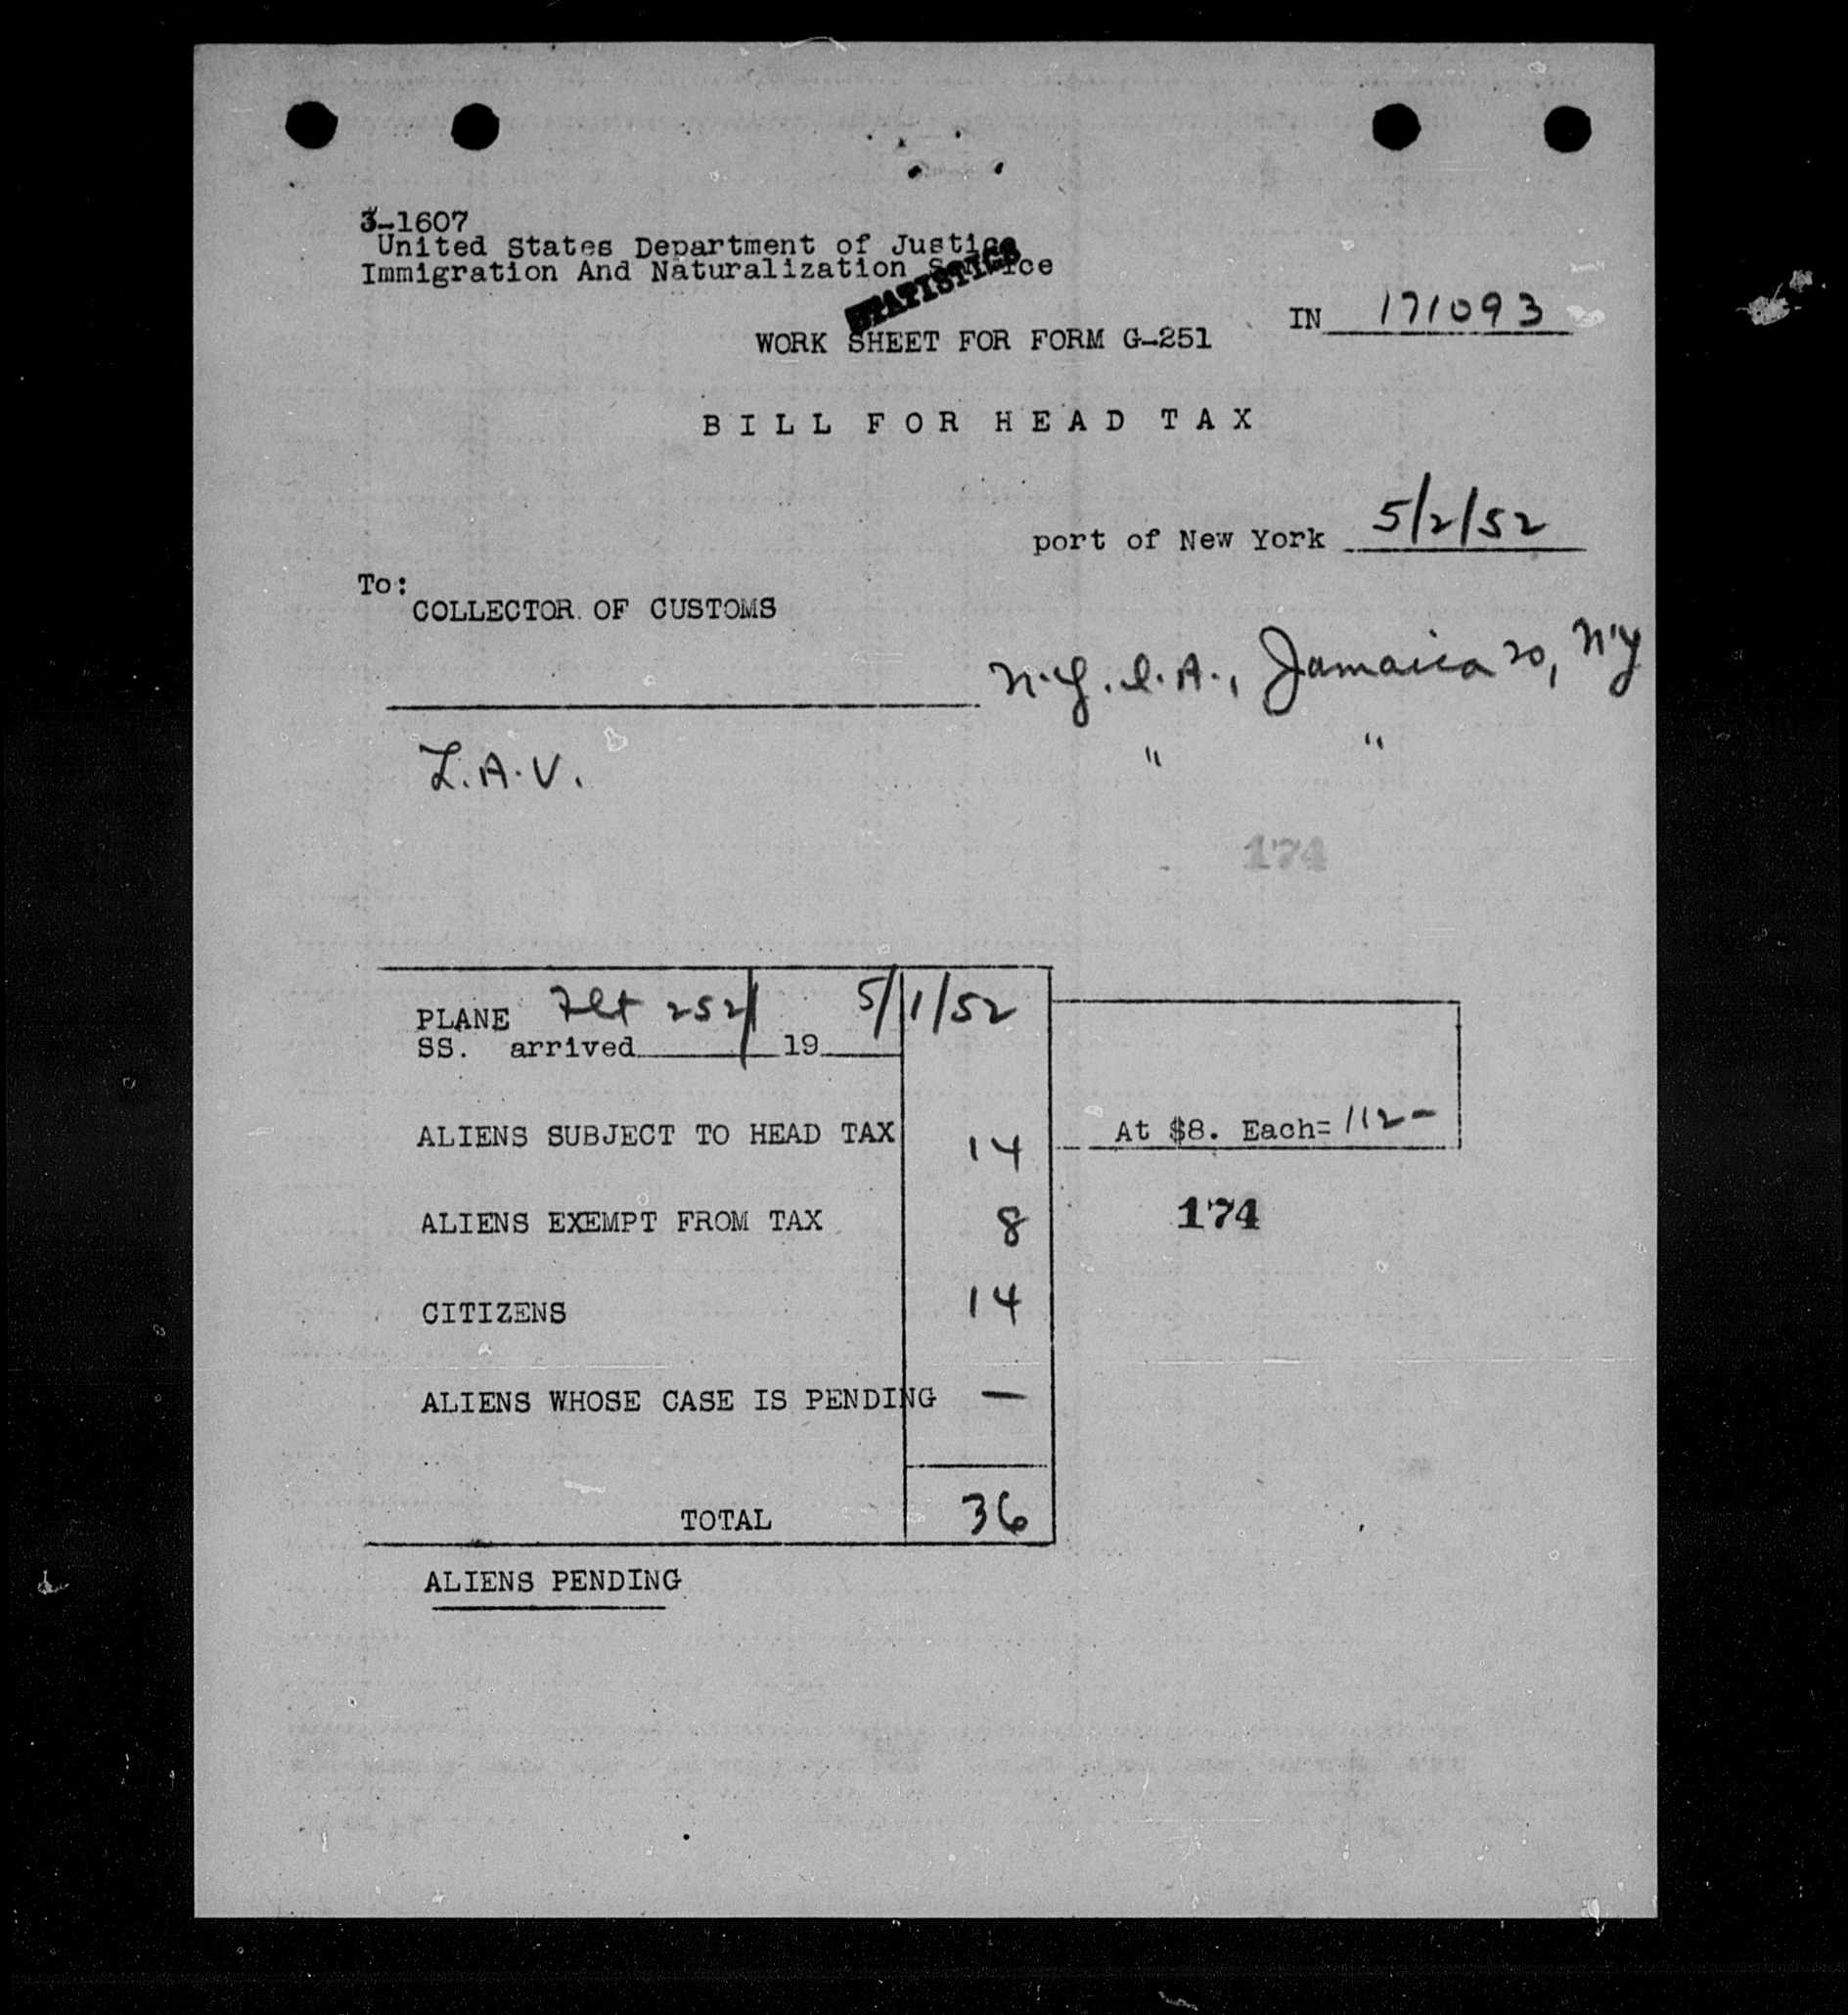 3-1607
United States Department of Justice
Immigration And Naturalization Service
STATISTICS
IN 171093
WORK SHEET FOR FORM G-251
BILL FOR HEAD TAX
port of New York 5/2/52
To:
COLLECTOR OF CUSTOMS
N.Y.I.A., Jamaica 20, N'Y
L.A.V. " "
174
PLANE Flt 252 5/1/52
SS. arrived 19
ALIENS SUBJECT TO HEAD TAX 14 At $8. Each= 112-
ALIENS EXEMPT FROM TAX 8 174
CITIZENS 14
ALIENS WHOSE CASE IS PENDING —
TOTAL 36
ALIENS PENDING